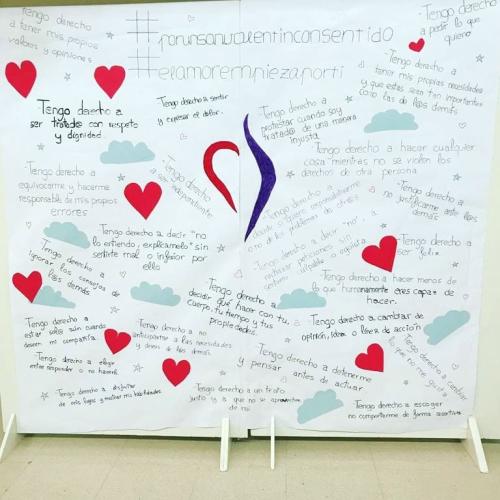 #porunsanvalentinconsentido
#elamorempiezaporti
Tengo derecho
a tener mis propios
valores y opiniones
-Tengo derecho
a pedir lo que
quiero
-Tengo derecho a
tener mis propias necesidades
y que estas sean tan importantes
como las de los demás
Tengo derecho a
ser tratado con respeto
y dignidad.
Tengo derecho a sentir
y expresar el dolor.
-Tengo derecho a
protestar cuando soy
tratado de una manera
injusta
-Tengo derecho a hacer cualquier
cosa mientras no se violen los
derechos de otra persona
-Tengo derecho a
equivocarme y hacerme
responsable de mis propios
errores
-Tengo derecho
a ser independiente
-Tengo derecho a
no justificarme ante los
demás
-Tengo derecho a
decidir si quiero responsabilizarme
o no de los problemas de otros
-Tengo derecho a decir "no
lo entiendo, explícamelo" sin
sentirte mal o inferior por
ello
-Tengo derecho a decir "no", a
rechazar peticiones sin
sentirme culpable o egoista
-Tengo derecho a
ser feliz
-Tengo derecho a
ignorar los consejos de
los demás
-Tengo derecho a hacer menos de
lo que humanamente eres capaz de
hacer.
-Tengo derecho a
decidir qué hacer con tu
cuerpo, tu tiempo y tus
propiedades.
-Tengo derecho a
estar solo aún cuando
deseen mi compañía.
-Tengo derecho a cambiar de
opinión, idea o línea de acción
-Tengo derecho a no
anticiparte a las necesidades
y deseos de los demás.
-Tengo derecho a cambiar
lo que no me gusta
-Tengo derecho a elegir
entre responder o no hacerlo.
-Tengo derecho a detenerme
y pensar antes de actuar
-Tengo derecho a disfrutar
de mis logros y mostrar mis habilidades.
-Tengo derecho a un trato
justo y a que no se aprovechen
de mi
-Tengo derecho a escoger
no comportarme de forma asertiva